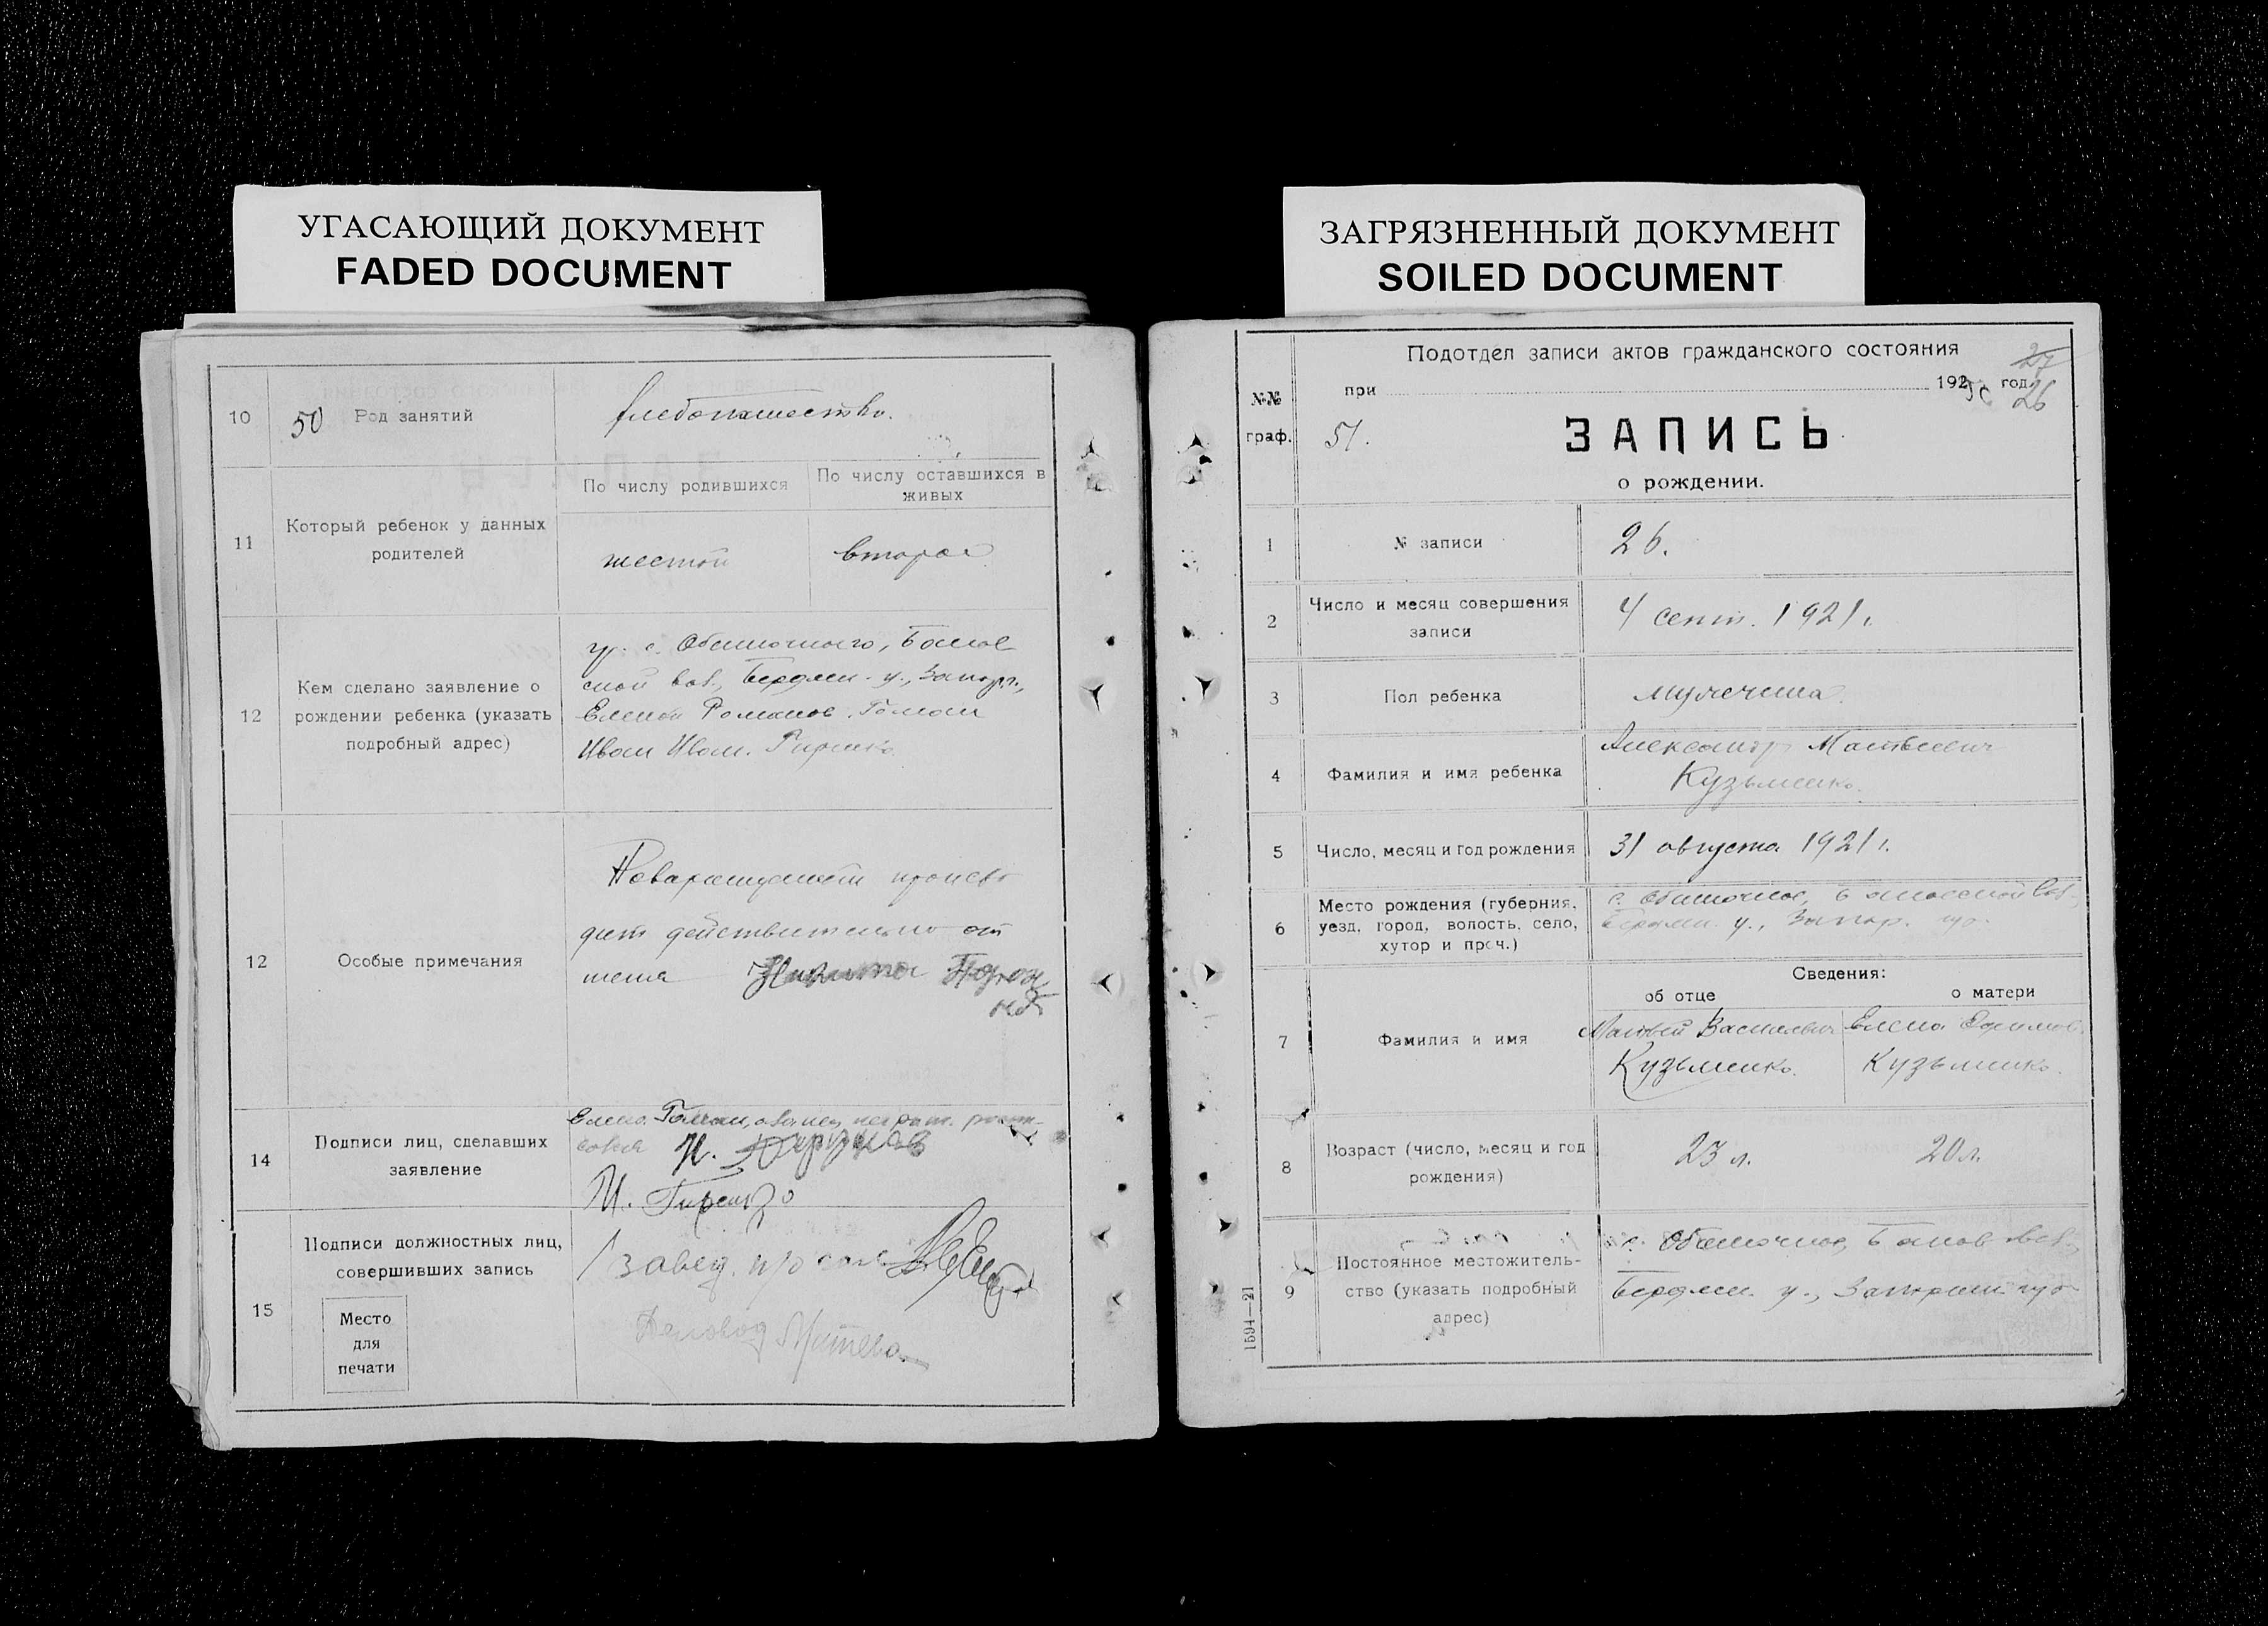 УГАСАЮЩИЙ ДОКУМЕНТ
FADED DOCUMENT
10
50
Род занятий
хлебопашество.
11
Который ребенок у данных
родителей
По числу родившихся
По числу оставшихся в
живых
шестой
второй
12
Кем сделано заявление о
рождении ребенка (указать
подробный адрес)
гр. с. Обиточного, Банов
ской вол., Бердян. у., Запор.,
Еленой Романов.
Иван Иван. Гиренко
12
Особые примечания
действительно от
14
Подписи лиц, сделавших
заявление
Елена
И.
И. Гиренко
15
Подписи должностных лиц,
совершивших запись
Место
для
печати
Завед. п/о
Деловод
ЗАГРЯЗНЕННЫЙ ДОКУМЕНТ
SOILED DOCUMENT
№№
граф.
Подотдел записи актов гражданского состояния
27
при 192 год.
26
51.
ЗАПИСЬ
о рождении.
1
№ записи
26.
2
Число и месяц совершения
записи
4 сент. 1921 г.
3
Пол ребенка
мужчина.
4
Фамилия и имя ребенка
Александр Матвеевич
Кузьменко.
5
Число, месяц и год рождения
31 августа 1921 г.
6
Место рождения (губерния,
уезд, город, волость, село,
хутор и проч.)
с. Обиточное, Бановской вол.
Бердян. у., Запор. губ.
Сведения:
об отце
о матери
7
Фамилия и имя
Матвей Васильевич
Кузьменко.
Елена Ефимов.
Кузьменко.
8
Возраст (число, месяц и год
рождения)
23 л.
20 л.
9
Постоянное местожитель-
ство (указать подробный
адрес)
с. Обиточное, Банов. вол.,
Бердян. у., Запорож. губ
1594—21